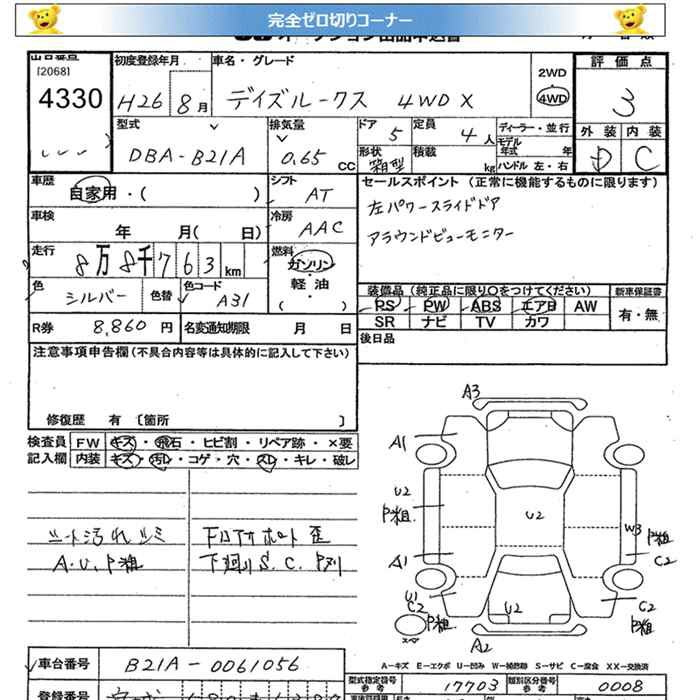 完全ゼロ切りコーナー
出品番号
[2068]
4330
初度登録年月
H26 8月
車名・グレード
デイズルークス 4WD X
2WD
4WD
評価点
3
外装 内装
D C
型式
DBA-B21A
排気量
0.65 CC
ドア
5
定員
4 人
形状
箱型
積載
kg
ディーラー・並行
モデル年式 年
ハンドル 左・右
車歴
自家用・( )
シフト
AT
車検
年 月( 日)
冷房
AAC
走行
8万8千763 km
燃料
ガソリン・軽・油・( )
色
シルバー
色替
色コード
A31
R券 8,860 円
名変通知期限 月 日
セールスポイント (正常に機能するものに限ります)
左パワースライドドア
アラウンドビューモニター
装備品(純正品に限り○をつけてください)
PS PW ABS エアB AW
SR ナビ TV カワ
新車保証書
有・無
後日品
注意事項申告欄(不具合内容等は具体的に記入して下さい)
修復歴 有 〔箇所 〕
検査員 FW キズ・飛石・ヒビ割・リペア跡・×要
記入欄 内装 キズ・汚れ・コゲ・穴・スレ・キレ・破し
シート汚れシミ
A.U.P粗
下回りS.C.
A3
A1
U2
P粗
U2
W3
P粗
C2
A1
U1
C2
P粗
U2
C2
P粗
A2
A-キズ E-エクボ U-凹み W-補修跡 S-サビ C-腐食 XX-交換済
車台番号
B21A-0061056
型式指定番号
参考
17703
類別区分番号
参考
0008